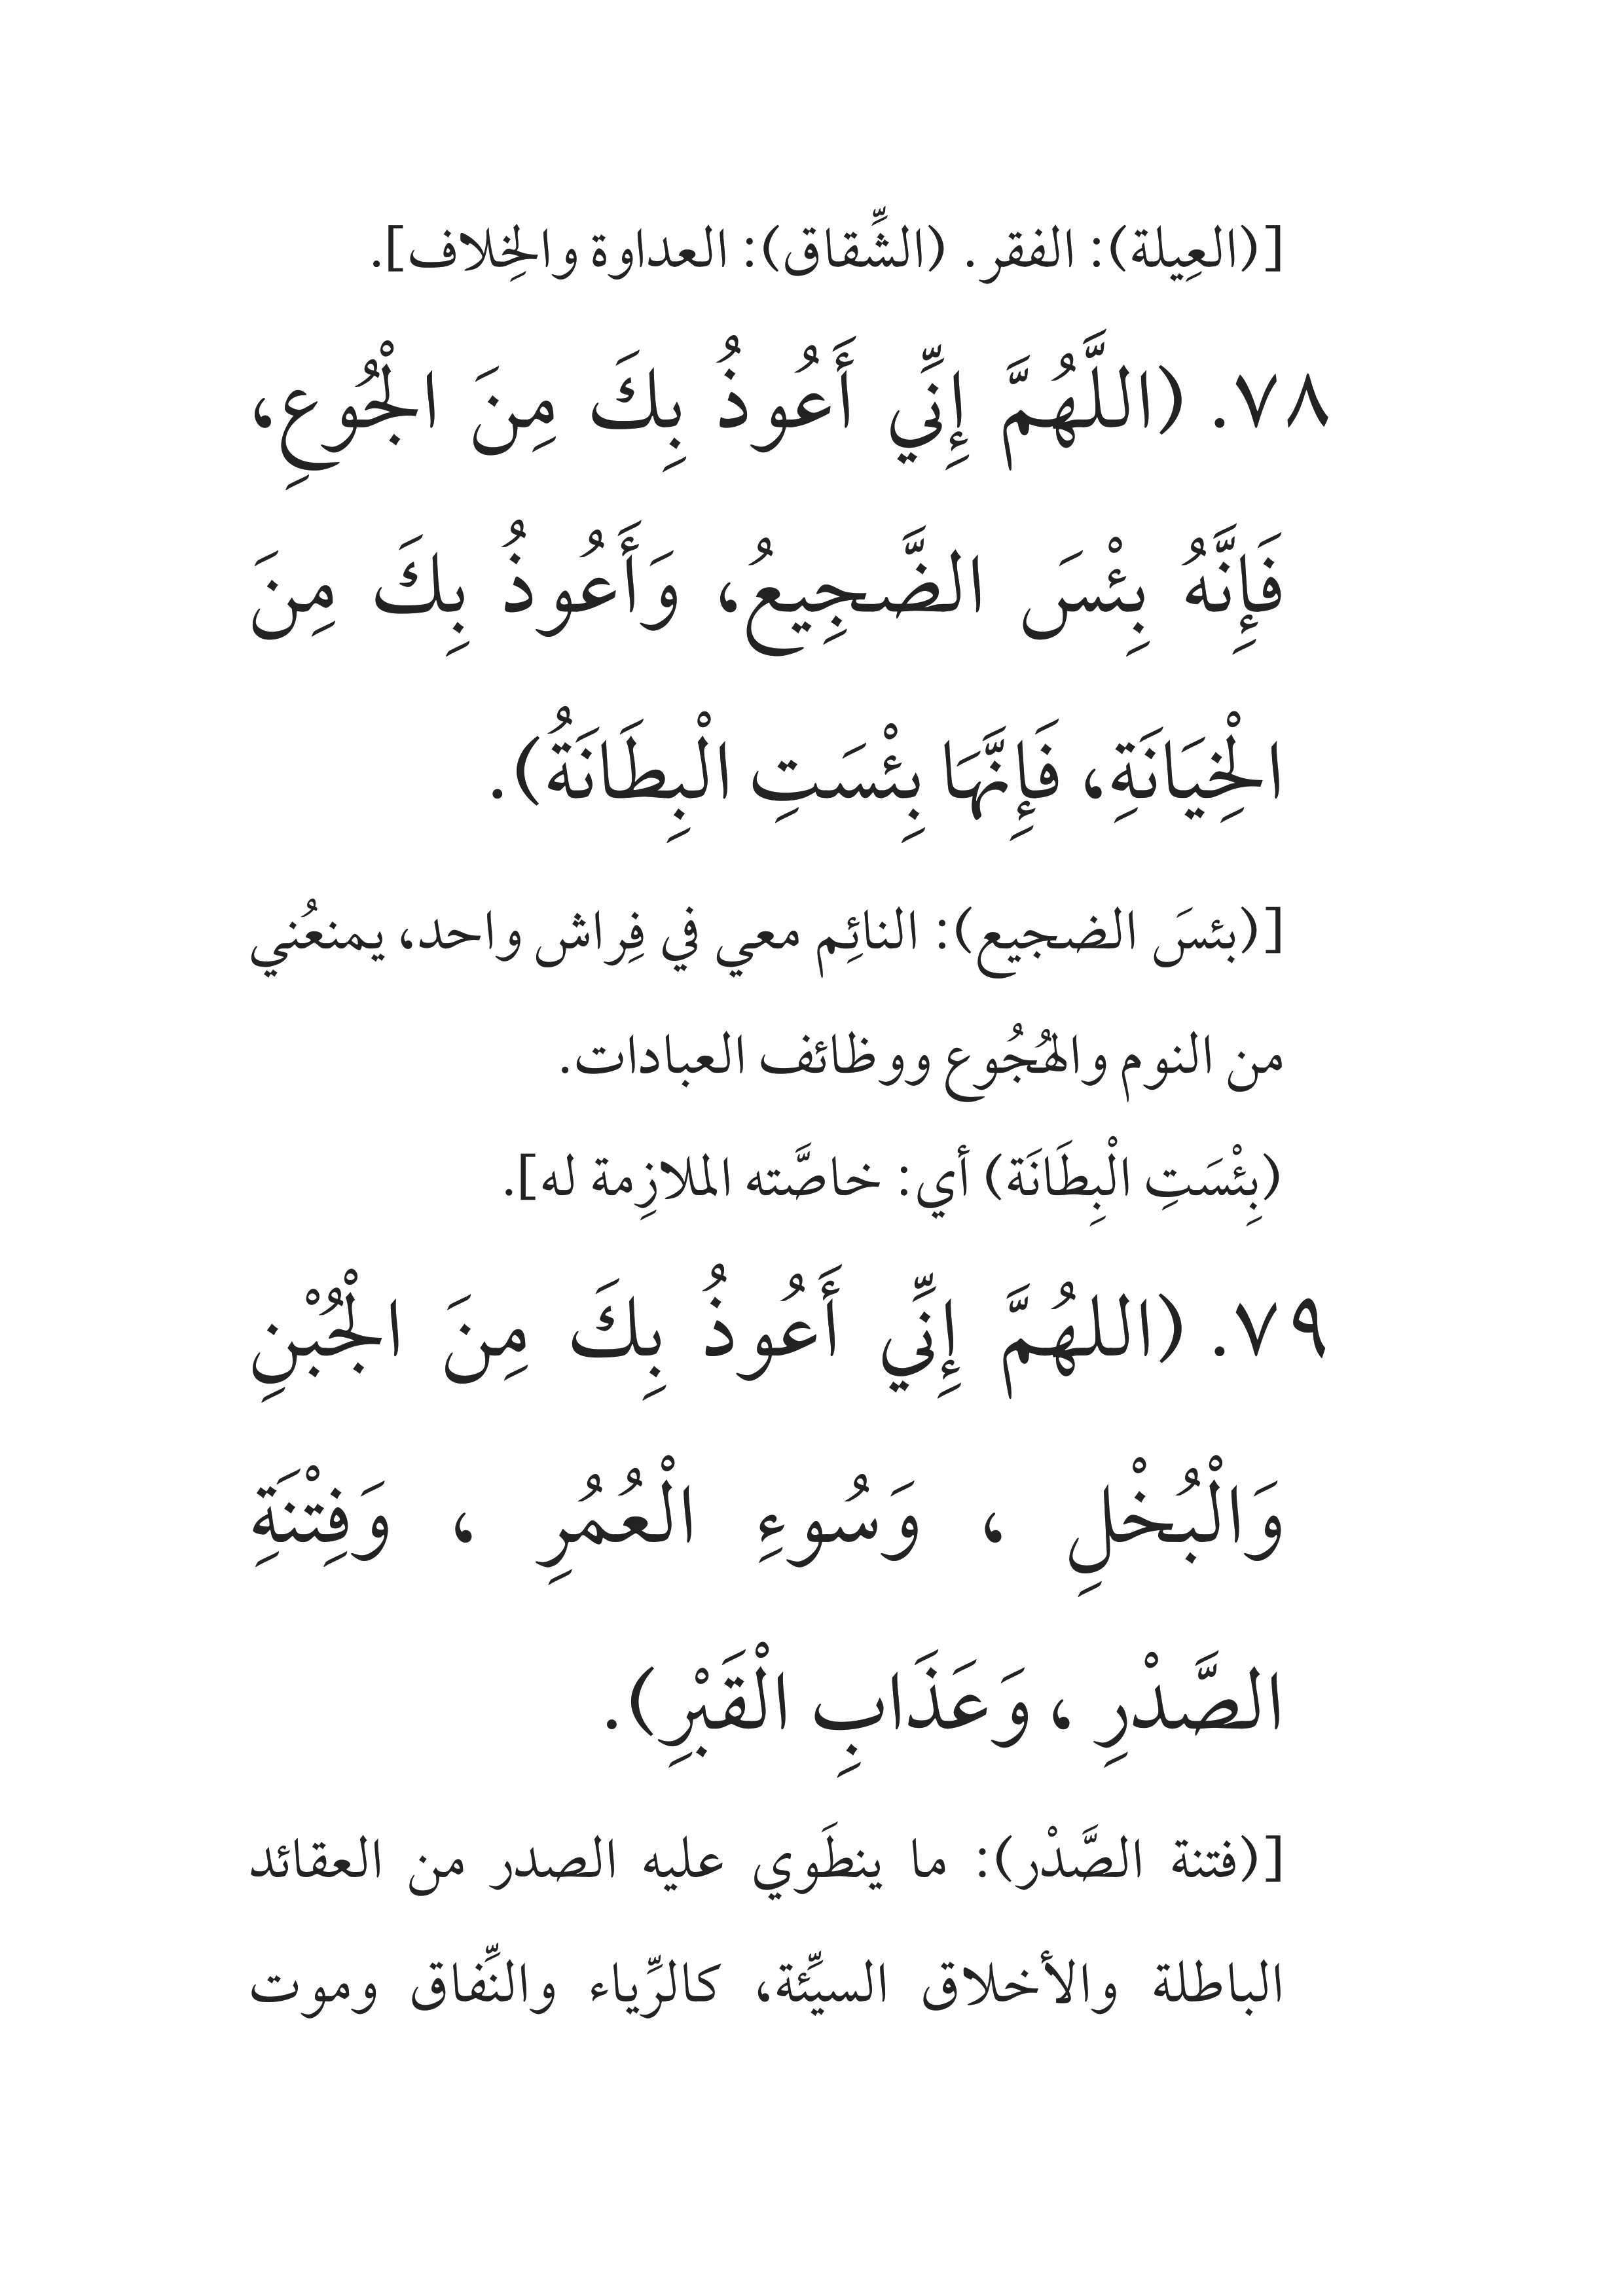 [(العِيلة): الفقر . (الشِّقاق): العداوة والخِلاف].
٧٨. (اللَّهُمَّ إِنِّي أَعُوذُ بِكَ مِنَ الْجُوعِ،
فَإِنَّهُ بِئْسَ الضَّجِيعُ، وَأَعُوذُ بِكَ مِنَ
الْخِيَانَةِ، فَإِنَّهَا بِئْسَتِ الْبِطَانَةُ).
[(بئسَ الضجيع): النائِم معي في فِراش واحد، يمنعُني
من النوم والهُجُوع ووظائف العبادات.
(بِئْسَتِ الْبِطَانَة) أي: خاصَّته الملازِمة له].
٧٩. (اللهُمَّ إِنِّي أَعُوذُ بِكَ مِنَ الْجُبْنِ
وَالْبُخْلِ ، وَسُوءِ الْعُمُرِ ، وَفِتْنَةِ
الصَّدْرِ ، وَعَذَابِ الْقَبْرِ).
[(فتنة الصَّدْر): ما ينطَوي عليه الصدر من العقائد
الباطلة والأخلاق السيِّئة، كالرِّياء والنِّفاق وموت